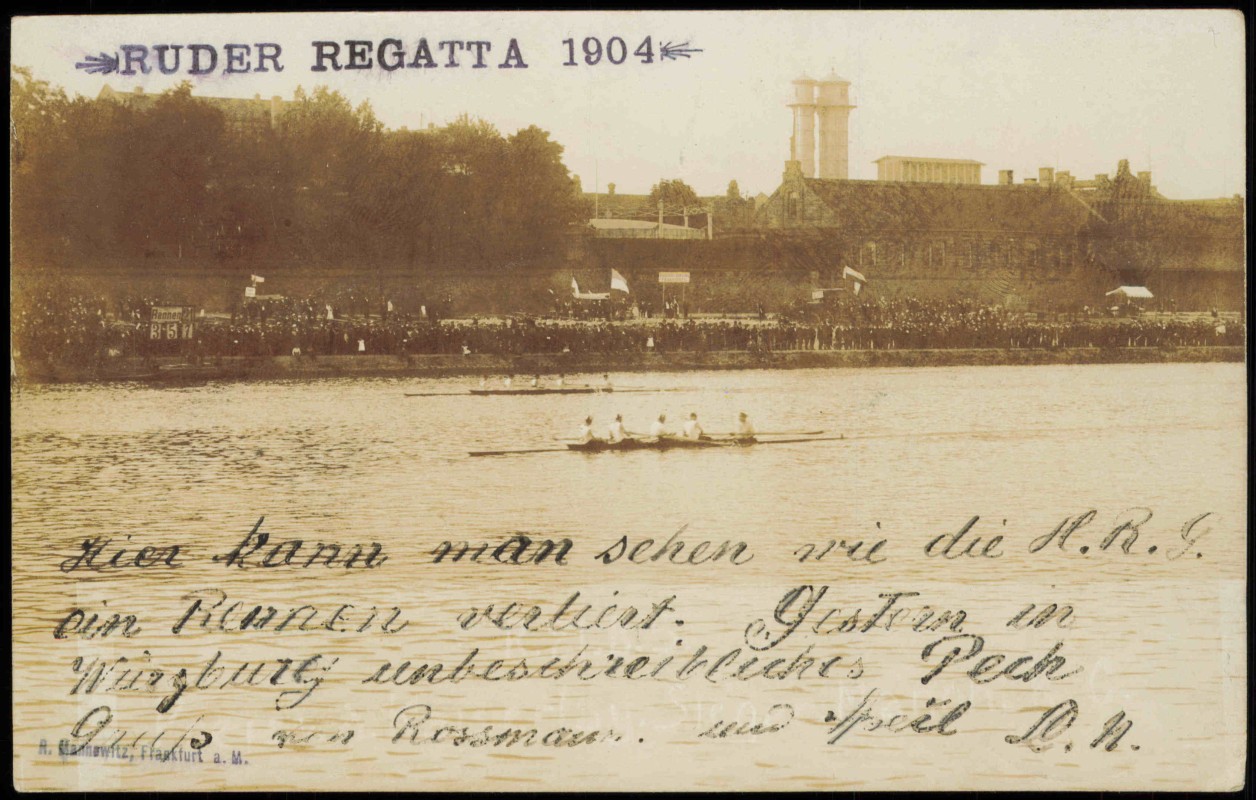 RUDER REGATTA 1904
Rennen
357
Hier kann man sehen wie die H. R. G.
ein Rennen verliert. Gestern in
Würzburg unbeschreibliches Pech
Gruß von Rossmann. und
R. Mannewitz, Frankfurt a. M.